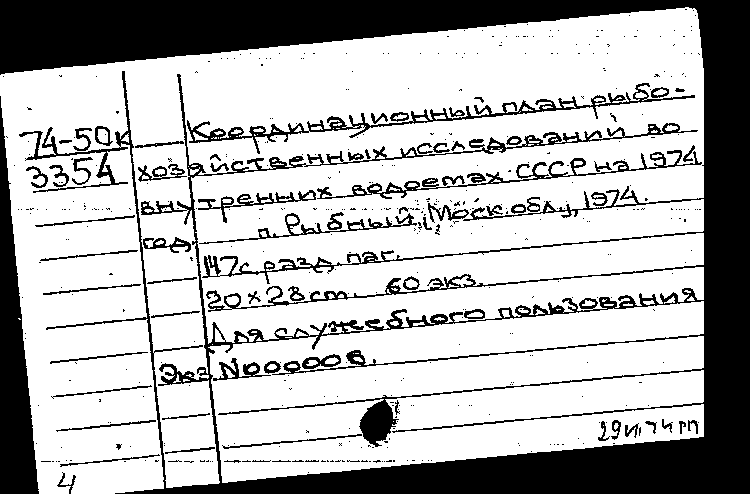 74-50к Координационный план рыбо-
3354 хозяйственных исследований во
внутренних водоемах СССР на 1974
год. п. Рыбный, Моск. обл., 1974.
147с. разд. паг.
20×28cm. 60 экз.
Для служебного пользования
Экз. N000006.
4